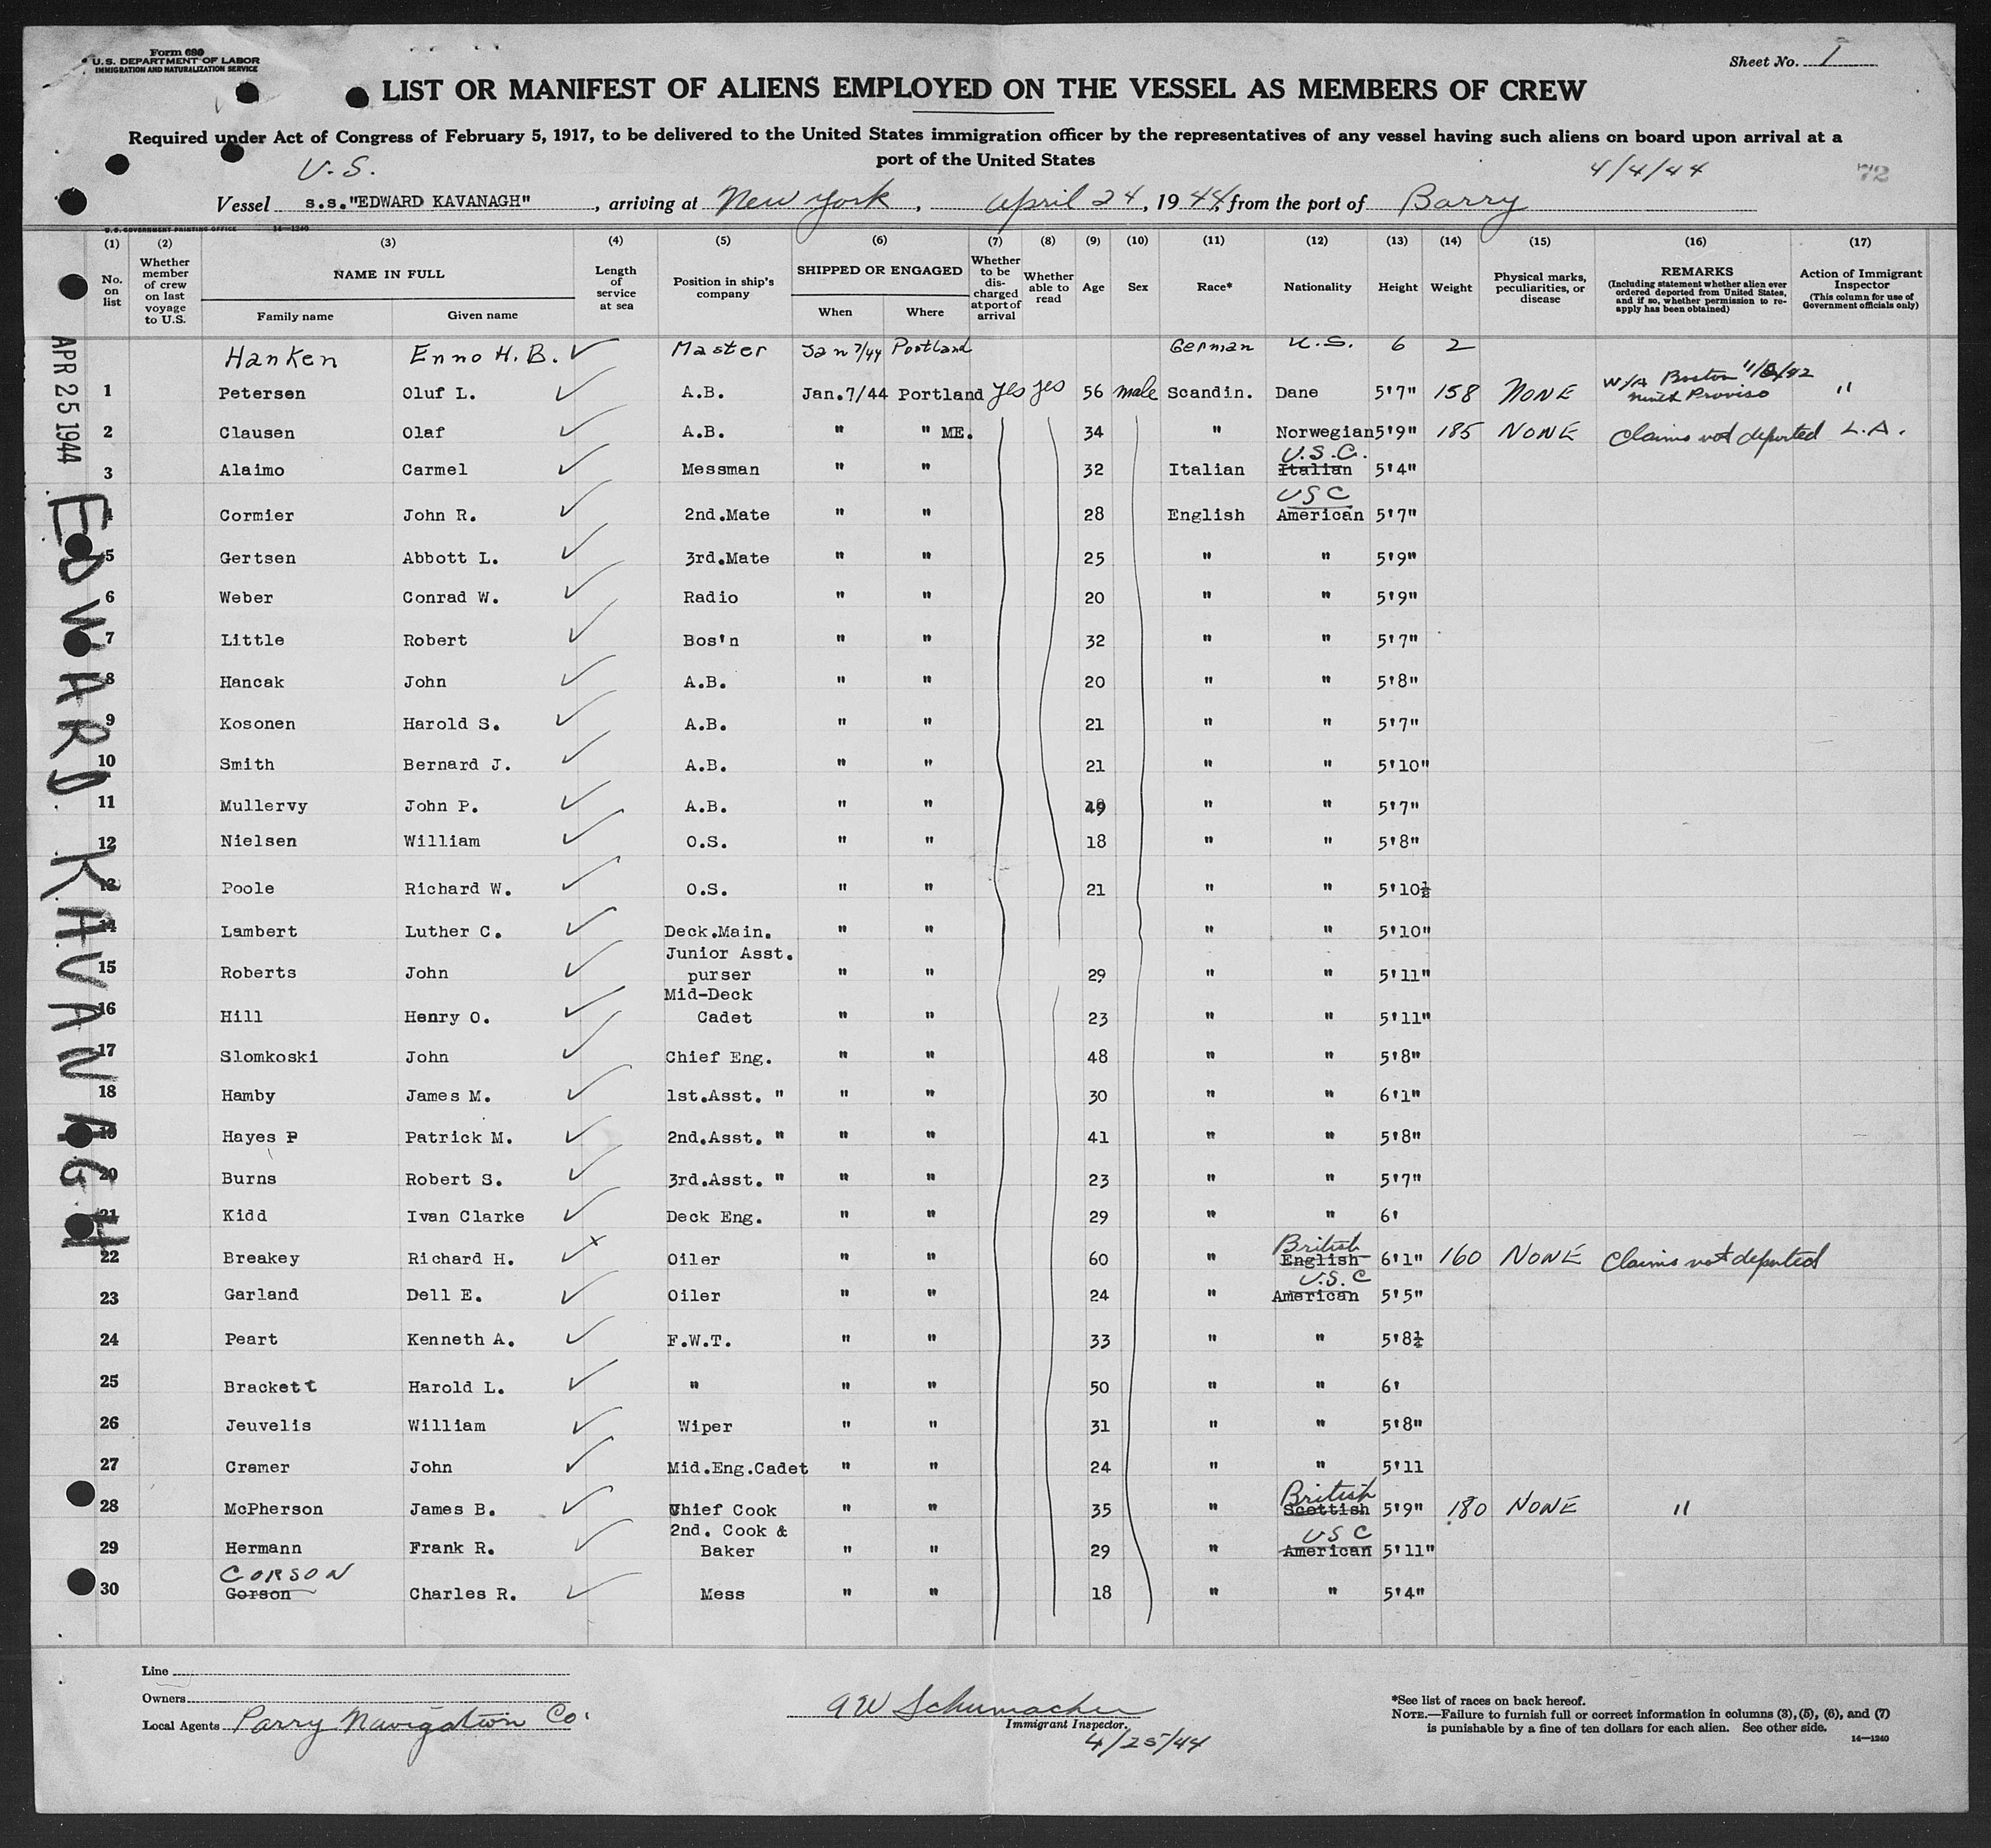 Form 680
U.S. DEPARTMENT OF LABOR
IMMIGRATION AND NATURALIZATION SERVICE
Sheet No. 1
LIST OR MANIFEST OF ALIENS EMPLOYED ON THE VESSEL AS MEMBERS OF CREW
Required under Act of Congress of February 5, 1917, to be delivered to the United States immigration officer by the representatives of any vessel having such aliens on board upon arrival at a
port of the United States
U.S. 4/4/44 72
Vessel s.s."EDWARD KAVANAGH", arriving at New York, April 24, 1944, from the port of Barry
U.S. GOVERNMENT PRINTING OFFICE 14—1240
(1) (2) (3) (4) (5) (6) (7) (8) (9) (10) (11) (12) (13) (14) (15) (16) (17)
No. on list
Whether member of crew on last voyage to U.S.
NAME IN FULL
Family name Given name
Length of service at sea
Position in ship's company
SHIPPED OR ENGAGED
When Where
Whether to be discharged at port of arrival
Whether able to read
Age Sex Race* Nationality Height Weight
Physical marks, peculiarities, or disease
REMARKS
(Including statement whether alien ever ordered deported from United States, and if so, whether permission to reapply has been obtained)
Action of Immigrant Inspector
(This column for use of Government officials only)
APR 25 1944
EDWARD KAVANAGH
Hanken Enno H. B. Master Jan 7/44 Portland German U.S. 6 2
1 Petersen Oluf L. A.B. Jan.7/44 Portland yes yes 56 male Scandin. Dane 5'7" 158 NONE W/A Boston 11/8/42 Ninth Proviso "
2 Clausen Olaf A.B. " " ME. 34 " Norwegian 5'9" 185 NONE Claims not deported L.A.
3 Alaimo Carmel Messman " " 32 Italian Italian U.S.C. 5'4"
4 Cormier John R. 2nd.Mate " " 28 English USC American 5'7"
5 Gertsen Abbott L. 3rd.Mate " " 25 " " 5'9"
6 Weber Conrad W. Radio " " 20 " " 5'9"
7 Little Robert Bos'n " " 32 " " 5'7"
8 Hancak John A.B. " " 20 " " 5'8"
9 Kosonen Harold S. A.B. " " 21 " " 5'7"
10 Smith Bernard J. A.B. " " 21 " " 5'10"
11 Mullervy John P. A.B. " " " " 5'7"
12 Nielsen William O.S. " " 18 " " 5'8"
13 Poole Richard W. O.S. " " 21 " " 5'10½
14 Lambert Luther C. Deck.Main. " " " " 5'10"
15 Roberts John Junior Asst. purser " " 29 " " 5'11"
16 Hill Henry O. Mid-Deck Cadet " " 23 " " 5'11"
17 Slomkoski John Chief Eng. " " 48 " " 5'8"
18 Hamby James M. 1st.Asst. " " " 30 " " 6'1"
19 Hayes P Patrick M. 2nd.Asst. " " " 41 " " 5'8"
20 Burns Robert S. 3rd.Asst. " " " 23 " " 5'7"
21 Kidd Ivan Clarke Deck Eng. " " 29 " " 6'
22 Breakey Richard H. Oiler " " 60 " English British 6'1" 160 NONE Claims not deported
23 Garland Dell E. Oiler " " 24 " American U.S.C 5'5"
24 Peart Kenneth A. F.W.T. " " 33 " " 5'8½
25 Brackett Harold L. " " " 50 " " 6'
26 Jeuvelis William Wiper " " 31 " " 5'8"
27 Cramer John Mid.Eng.Cadet " " 24 " " 5'11
28 McPherson James B. Chief Cook " " 35 " Scottish British 5'9" 180 NONE "
29 Hermann Frank R. 2nd. Cook & Baker " " 29 " American USC 5'11"
30 Gorson CORSON Charles R. Mess " " 18 " " 5'4"
Line
Owners
Local Agents Parry Navigation Co.
A W Schumacher
Immigrant Inspector.
4/25/44
*See list of races on back hereof.
NOTE.—Failure to furnish full or correct information in columns (3), (5), (6), and (7)
is punishable by a fine of ten dollars for each alien. See other side.
14—1240